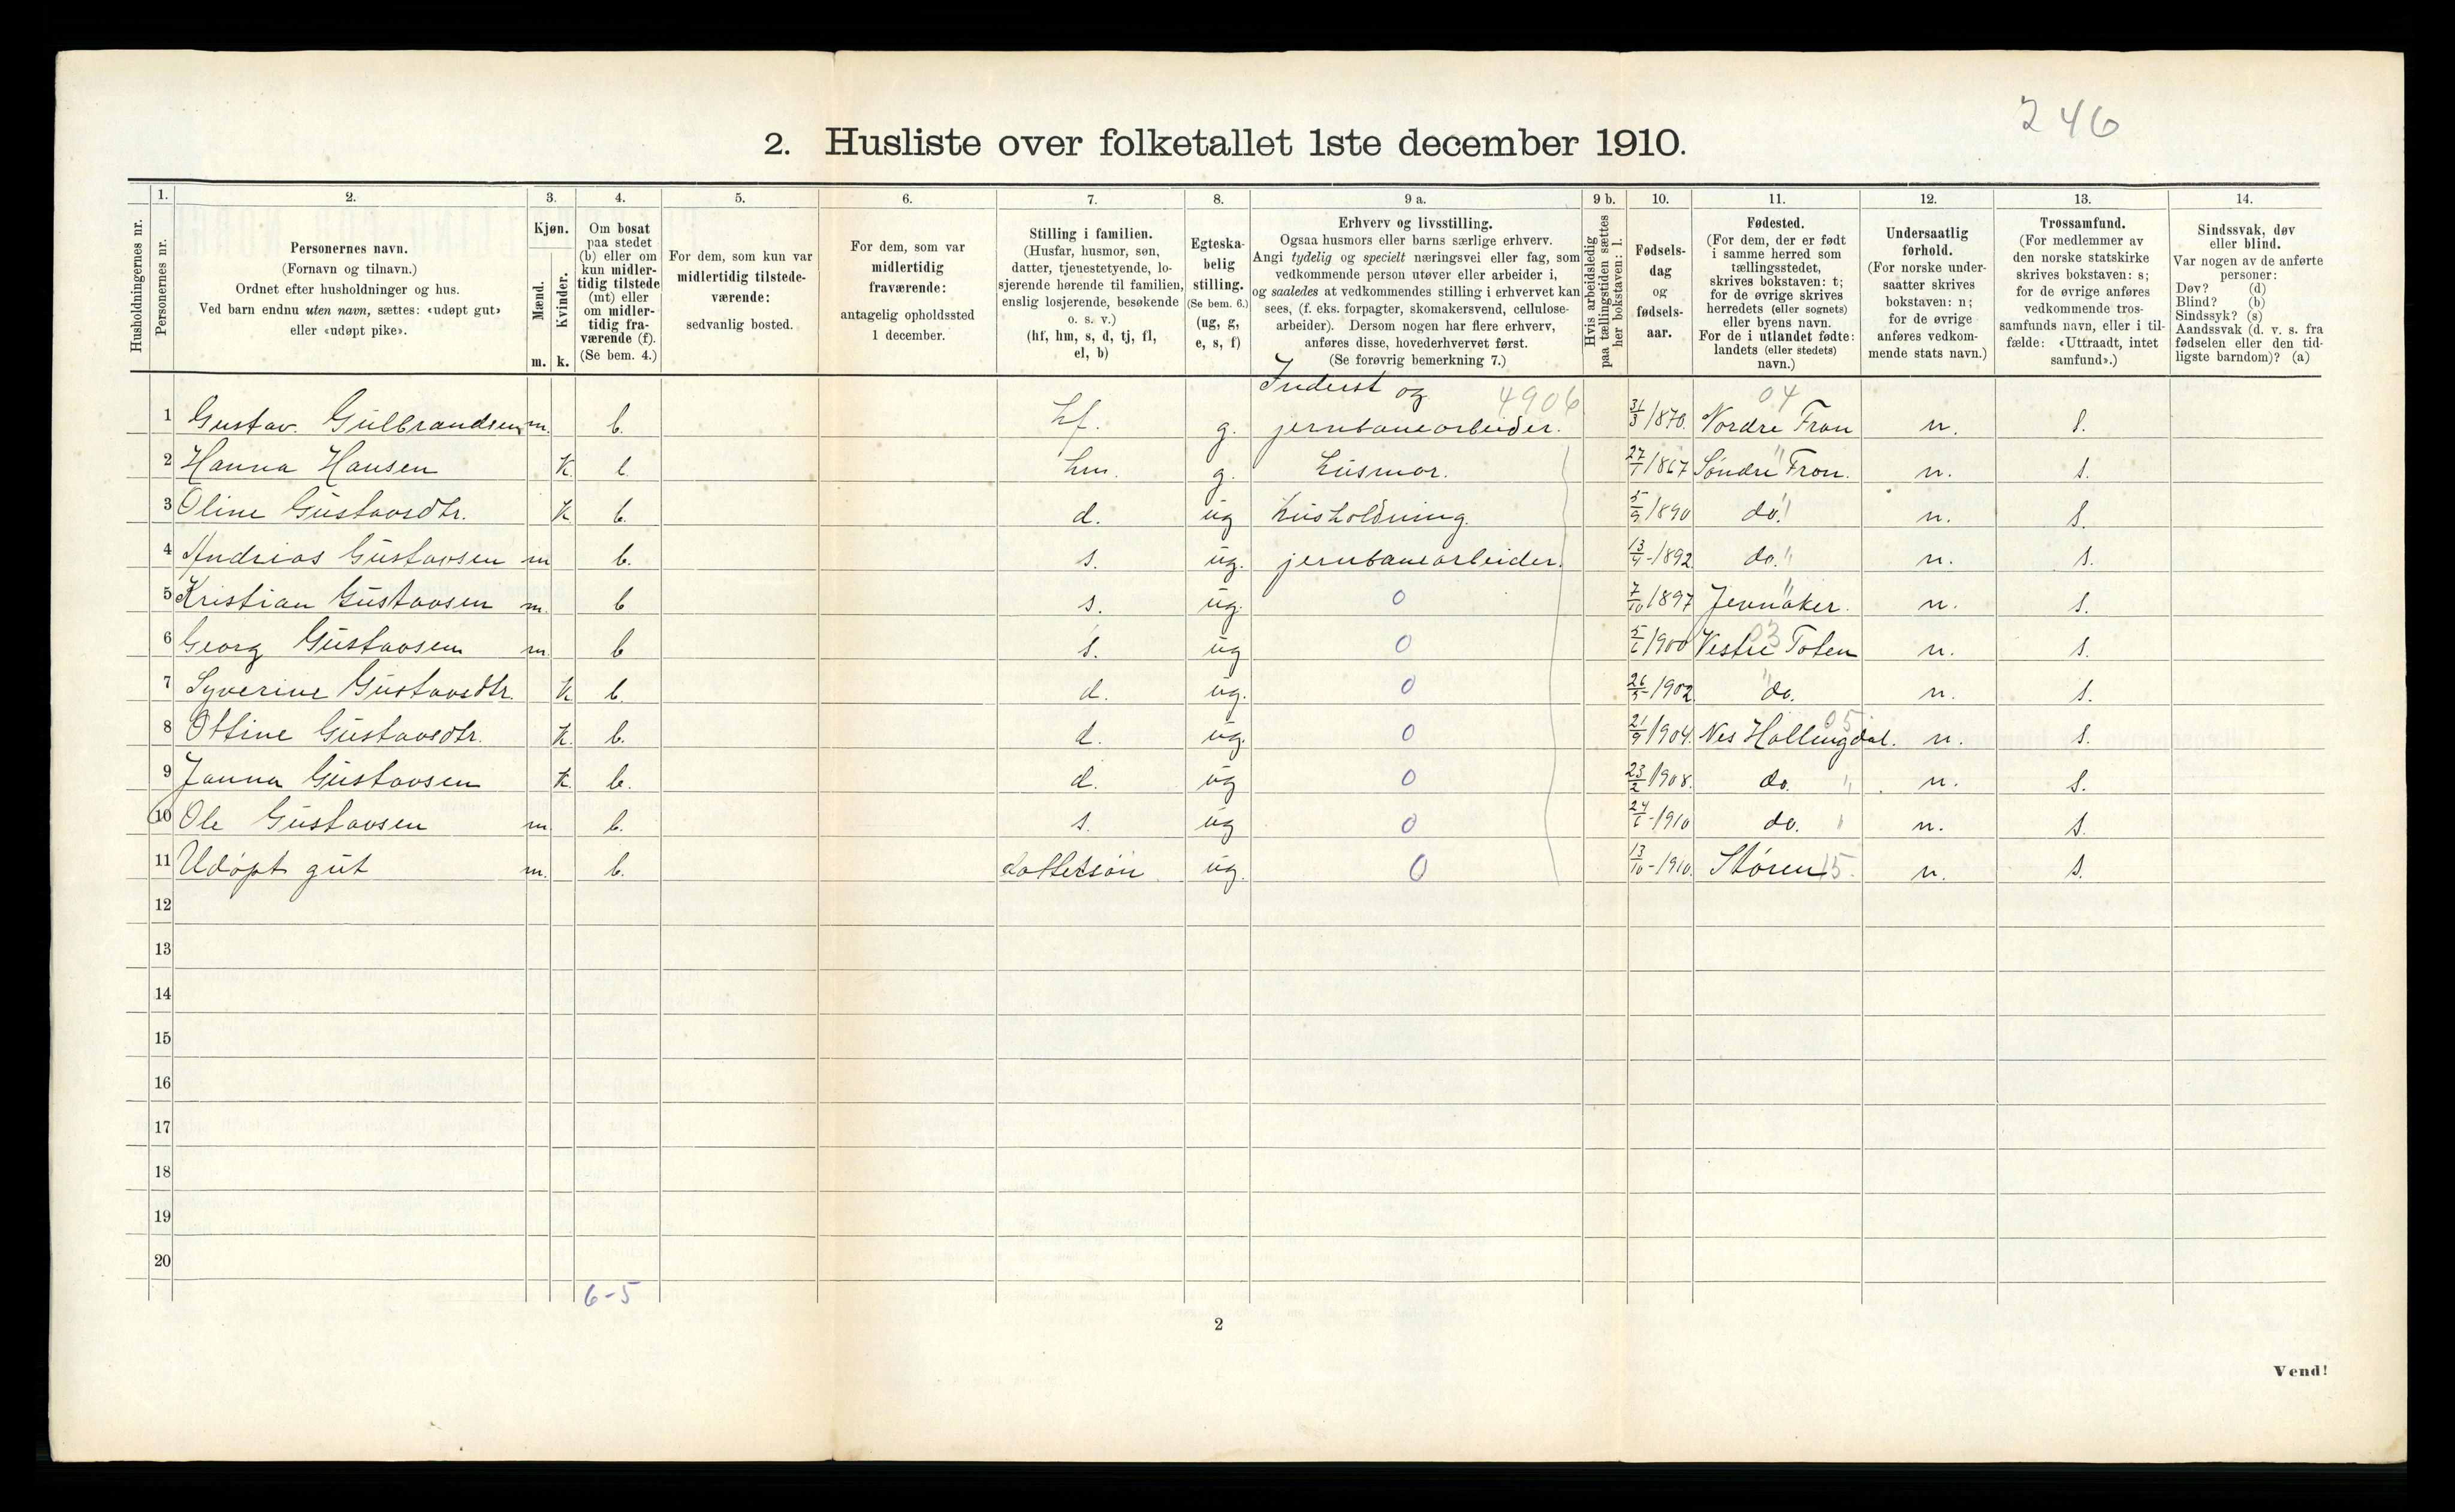 246
2. Husliste over folketallet 1ste december 1910.
Husholdningernes nr.
1. Personernes nr.
2. Personernes navn.
(Fornavn og tilnavn.)
Ordnet efter husholdninger og hus.
Ved barn endnu uten navn, sættes: «udøpt gut»
eller «udøpt pike».
3. Kjøn.
Mænd. m.
Kvinder. k.
4. Om bosat
paa stedet
(b) eller om
kun midler-
tidig tilstede
(mt) eller
om midler-
tidig fra-
værende (f).
(Se bem. 4.)
5. For dem, som kun var
midlertidig tilstede-
værende:
sedvanlig bosted.
6. For dem, som var
midlertidig
fraværende:
antagelig opholdssted
1 december.
7. Stilling i familien.
(Husfar, husmor, søn,
datter, tjenestetyende, lo-
sjerende hørende til familien,
enslig losjerende, besøkende
o. s. v.)
(hf, hm, s, d, tj, fl,
el, b)
8. Egteska-
belig
stilling.
(Se bem. 6.)
(ug, g,
e, s, f)
9 a. Erhverv og livsstilling.
Ogsaa husmors eller barns særlige erhverv.
Angi tydelig og specielt næringsvei eller fag, som
vedkommende person utøver eller arbeider i,
og saaledes at vedkommendes stilling i erhvervet kan
sees, (f. eks. forpagter, skomakersvend, cellulose-
arbeider). Dersom nogen har flere erhverv,
anføres disse, hovederhvervet først.
(Se forøvrig bemerkning 7.)
9 b. Hvis arbeidsledig
paa tællingstiden sættes
her bokstaven: l.
10. Fødsels-
dag
og
fødsels-
aar.
11. Fødested.
(For dem, der er født
i samme herred som
tællingsstedet,
skrives bokstaven: t;
for de øvrige skrives
herredets (eller sognets)
eller byens navn.
For de i utlandet fødte:
landets (eller stedets)
navn.)
12. Undersaatlig
forhold.
(For norske under-
saatter skrives
bokstaven: n;
for de øvrige
anføres vedkom-
mende stats navn.)
13. Trossamfund.
(For medlemmer av
den norske statskirke
skrives bokstaven: s;
for de øvrige anføres
vedkommende tros-
samfunds navn, eller i til-
fælde: «Uttraadt, intet
samfund».)
14. Sindssvak, døv
eller blind.
Var nogen av de anførte
personer:
Døv? (d)
Blind? (b)
Sindssyk? (s)
Aandssvak (d. v. s. fra
fødselen eller den tid-
ligste barndom)? (a)
Inderst og 4906 04
1 Gustav. Gulbrandsen m. b. hf. g. jernbanearbeider. 31/3 1870. Nordre Fron n. s.
2 Hanna Hansen K b hm. g. husmor. 27/1 1867 Søndre Fron. " n. s.
3 Oline Gustavsdtr. K b. d. ug husholdning. 5/9 1890 do. " n. s.
4 Andreas Gustavsen m b. s. ug. jernbanearbeider. 13/4-1892 do. " n. s.
5 Kristian Gustavsen m. b s. ug. 0 7/10 1897 Jevnaker. " n. s.
6 Georg Gustavsen m. b s. ug 0 5/6 1900 Vestre Toten 03 n. s.
7 Syverine Gustavsdtr. K b. d. ug. 0 26/5-1902 do. " n. s.
8 Ottine Gustavsdtr. K. b. d. ug. 0 21/9 1904. Nes Hallingdal. 05 n. s.
9 Janna Gustavsen K. b. d. ug 0 23/2 1908. do. " n. s.
10 Ole Gustavsen m b. s. ug 0 24/6-1910 do. " n. s.
11 Udøpt gut m. b. dattersøn ug. 0 13/10-1910. Støren 15. n. s.
12
13
14
15
16
17
18
19
20
6-5
2
Vend!